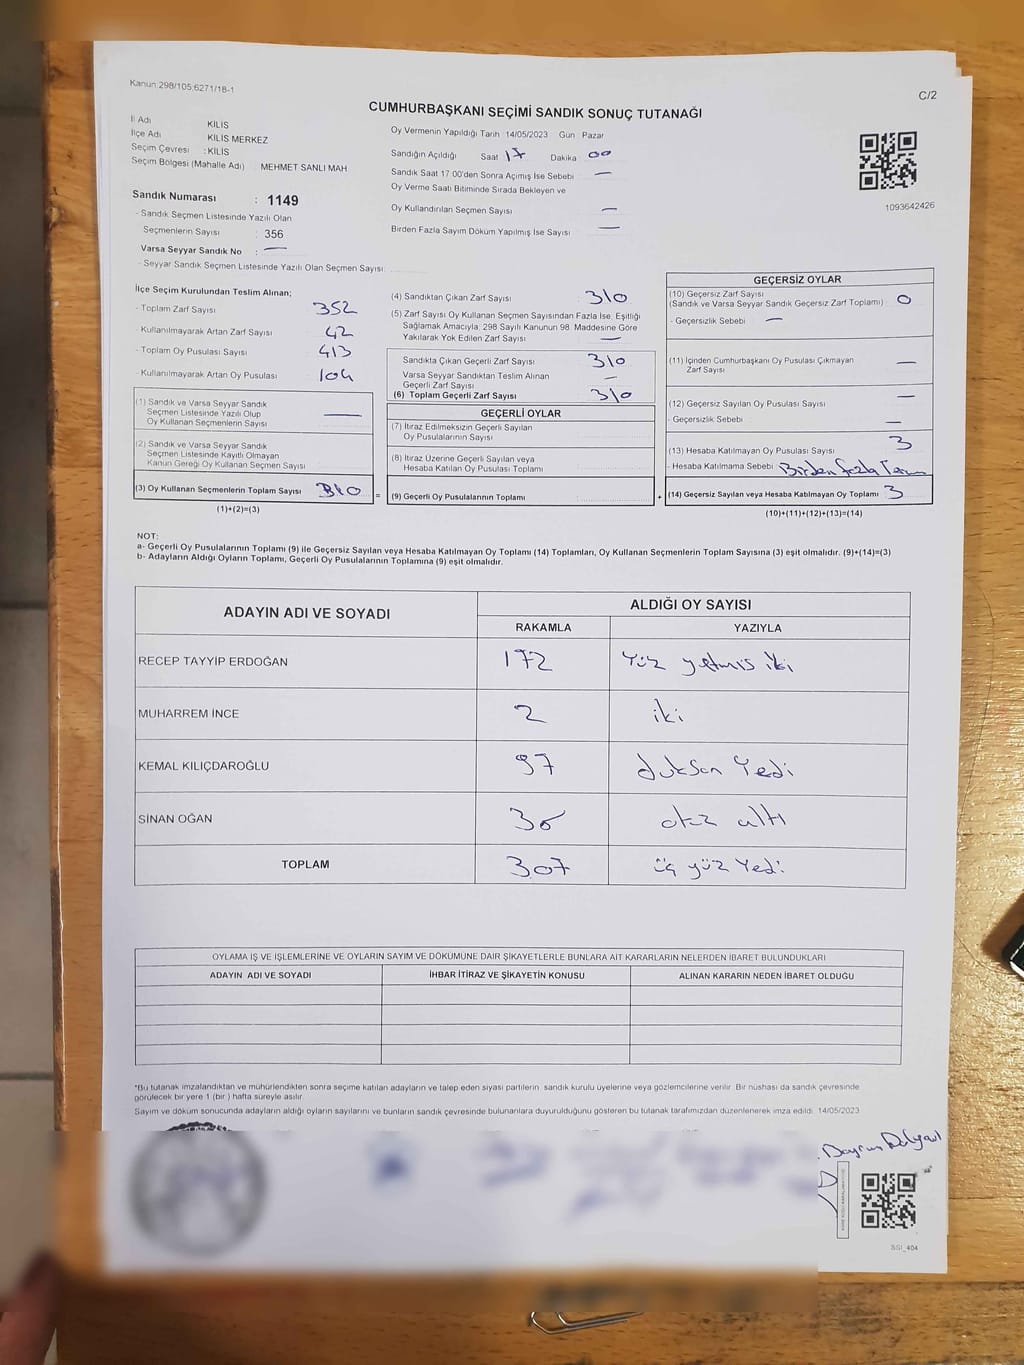 Kanun:298/105;6271/18-1
C/2
CUMHURBAŞKANI SEÇİMİ SANDIK SONUÇ TUTANAĞI
İl Adı KİLİS
İlçe Adı KİLİS MERKEZ
Seçim Çevresi : KİLİS
Seçim Bölgesi (Mahalle Adı) MEHMET SANLI MAH
Sandık Numarası : 1149
- Sandık Seçmen Listesinde Yazılı Olan
Seçmenlerin Sayısı : 356
Varsa Seyyar Sandık No : —
- Seyyar Sandık Seçmen Listesinde Yazılı Olan Seçmen Sayısı:
Oy Vermenin Yapıldığı Tarih 14/05/2023 Gün Pazar
Sandığın Açıldığı Saat 17 Dakika 00
Sandık Saat 17.00'den Sonra Açımış İse Sebebi —
Oy Verme Saati Bitiminde Sırada Bekleyen ve
Oy Kullandırılan Seçmen Sayısı —
Birden Fazla Sayım Döküm Yapılmış İse Sayısı —
1093642426
İlçe Seçim Kurulundan Teslim Alınan;
- Toplam Zarf Sayısı 352
- Kullanılmayarak Artan Zarf Sayısı 42
- Toplam Oy Pusulası Sayısı 413
- Kullanılmayarak Artan Oy Pusulası 104
(1) Sandık ve Varsa Seyyar Sandık
Seçmen Listesinde Yazılı Olup
Oy Kullanan Seçmenlerin Sayısı —
(2) Sandık ve Varsa Seyyar Sandık
Seçmen Listesinde Kayıtlı Olmayan
Kanun Gereği Oy Kullanan Seçmen Sayısı
(3) Oy Kullanan Seçmenlerin Toplam Sayısı 310 =
(1)+(2)=(3)
(4) Sandıktan Çıkan Zarf Sayısı 310
(5) Zarf Sayısı Oy Kullanan Seçmen Sayısından Fazla İse, Eşitliği
Sağlamak Amacıyla; 298 Sayılı Kanunun 98. Maddesine Göre
Yakılarak Yok Edilen Zarf Sayısı —
Sandıkta Çıkan Geçerli Zarf Sayısı 310
Varsa Seyyar Sandıktan Teslim Alınan
Geçerli Zarf Sayısı —
(6) Toplam Geçerli Zarf Sayısı 310
GEÇERLİ OYLAR
(7) İtiraz Edilmeksizin Geçerli Sayılan
Oy Pusulalarının Sayısı
(8) İtiraz Üzerine Geçerli Sayılan veya
Hesaba Katılan Oy Pusulası Toplamı
(9) Geçerli Oy Pusulalarının Toplamı +
GEÇERSİZ OYLAR
(10) Geçersiz Zarf Sayısı
(Sandık ve Varsa Seyyar Sandık Geçersiz Zarf Toplamı) 0
- Geçersizlik Sebebi —
(11) İçinden Cumhurbaşkanı Oy Pusulası Çıkmayan
Zarf Sayısı —
(12) Geçersiz Sayılan Oy Pusulası Sayısı —
- Geçersizlik Sebebi —
(13) Hesaba Katılmayan Oy Pusulası Sayısı 3
- Hesaba Katılmama Sebebi Birden fazla
(14) Geçersiz Sayılan veya Hesaba Katılmayan Oy Toplamı 3
(10)+(11)+(12)+(13)=(14)
NOT:
a- Geçerli Oy Pusulalarının Toplamı (9) ile Geçersiz Sayılan veya Hesaba Katılmayan Oy Toplamı (14) Toplamları, Oy Kullanan Seçmenlerin Toplam Sayısına (3) eşit olmalıdır. (9)+(14)=(3)
b- Adayların Aldığı Oyların Toplamı, Geçerli Oy Pusulalarının Toplamına (9) eşit olmalıdır.
ADAYIN ADI VE SOYADI ALDIĞI OY SAYISI
RAKAMLA YAZIYLA
RECEP TAYYİP ERDOĞAN 172 Yüz yetmiş iki
MUHARREM İNCE 2 iki
KEMAL KILIÇDAROĞLU 97 duksan Yedi
SİNAN OĞAN 36 otuz altı
TOPLAM 307 üç yüz Yedi
OYLAMA İŞ VE İŞLEMLERİNE VE OYLARIN SAYIM VE DÖKÜMÜNE DAİR ŞİKAYETLERLE BUNLARA AİT KARARLARIN NELERDEN İBARET BULUNDUKLARI
ADAYIN ADI VE SOYADI İHBAR İTİRAZ VE ŞİKAYETİN KONUSU ALINAN KARARIN NEDEN İBARET OLDUĞU
*Bu tutanak imzalandıktan ve mühürlendikten sonra seçime katılan adayların ve talep eden siyasi partilerin, sandık kurulu üyelerine veya gözlemcilerine verilir. Bir nüshası da sandık çevresinde
görülecek bir yere 1 (bir ) hafta süreyle asılır.
Sayım ve döküm sonucunda adayların aldığı oyların sayılarını ve bunların sandık çevresinde bulunanlara duyurulduğunu gösteren bu tutanak tarafımızdan düzenlenerek imza edildi. 14/05/2023
SSI_404